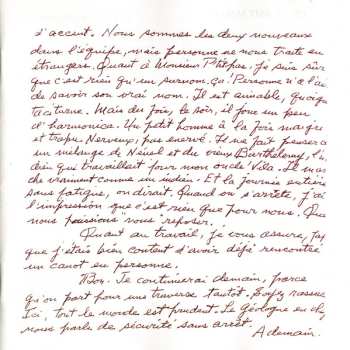 d'accent. Nous sommes les deux nouveaux
dans l'équipe, mais personne ne nous traite en
étrangers. Quant à Monsieur Phtpas. Je suis sûr
que c'est rien qu'un surnom, ça! Personne n'a l'ai
de savoir son vrai nom. Il est aimable, quoique
taciturne. Mais des fois, le soir, il joue un peu
d'harmonica. Un petit homme à la fois maigre
et trapu. Nerveux, pas énervé. Il me fait penser à
un mélange de Ménel et du vieux Barthélemy, l'i
dien qui travaillait pour mon oncle Vila. Il mar
che vraiment comme un indien. Et la journée entière
sans fatigue, on dirait. Quand on s'arrête, j'ai
l'impression que c'est rien que pour nous. Que
nous puissions nous reposer.
Quant au travail, je vous assure,
que j'étais bien content d'avoir déjà rencontré
un canot en personne.
Bon. Je continuerai demain, parce
qu'on part pour une traverse tantôt. Soyez rassuré
Ici, tout le monde est prudent. Le géologue en che
nous parle de sécurité sans arrêt.
A demain.